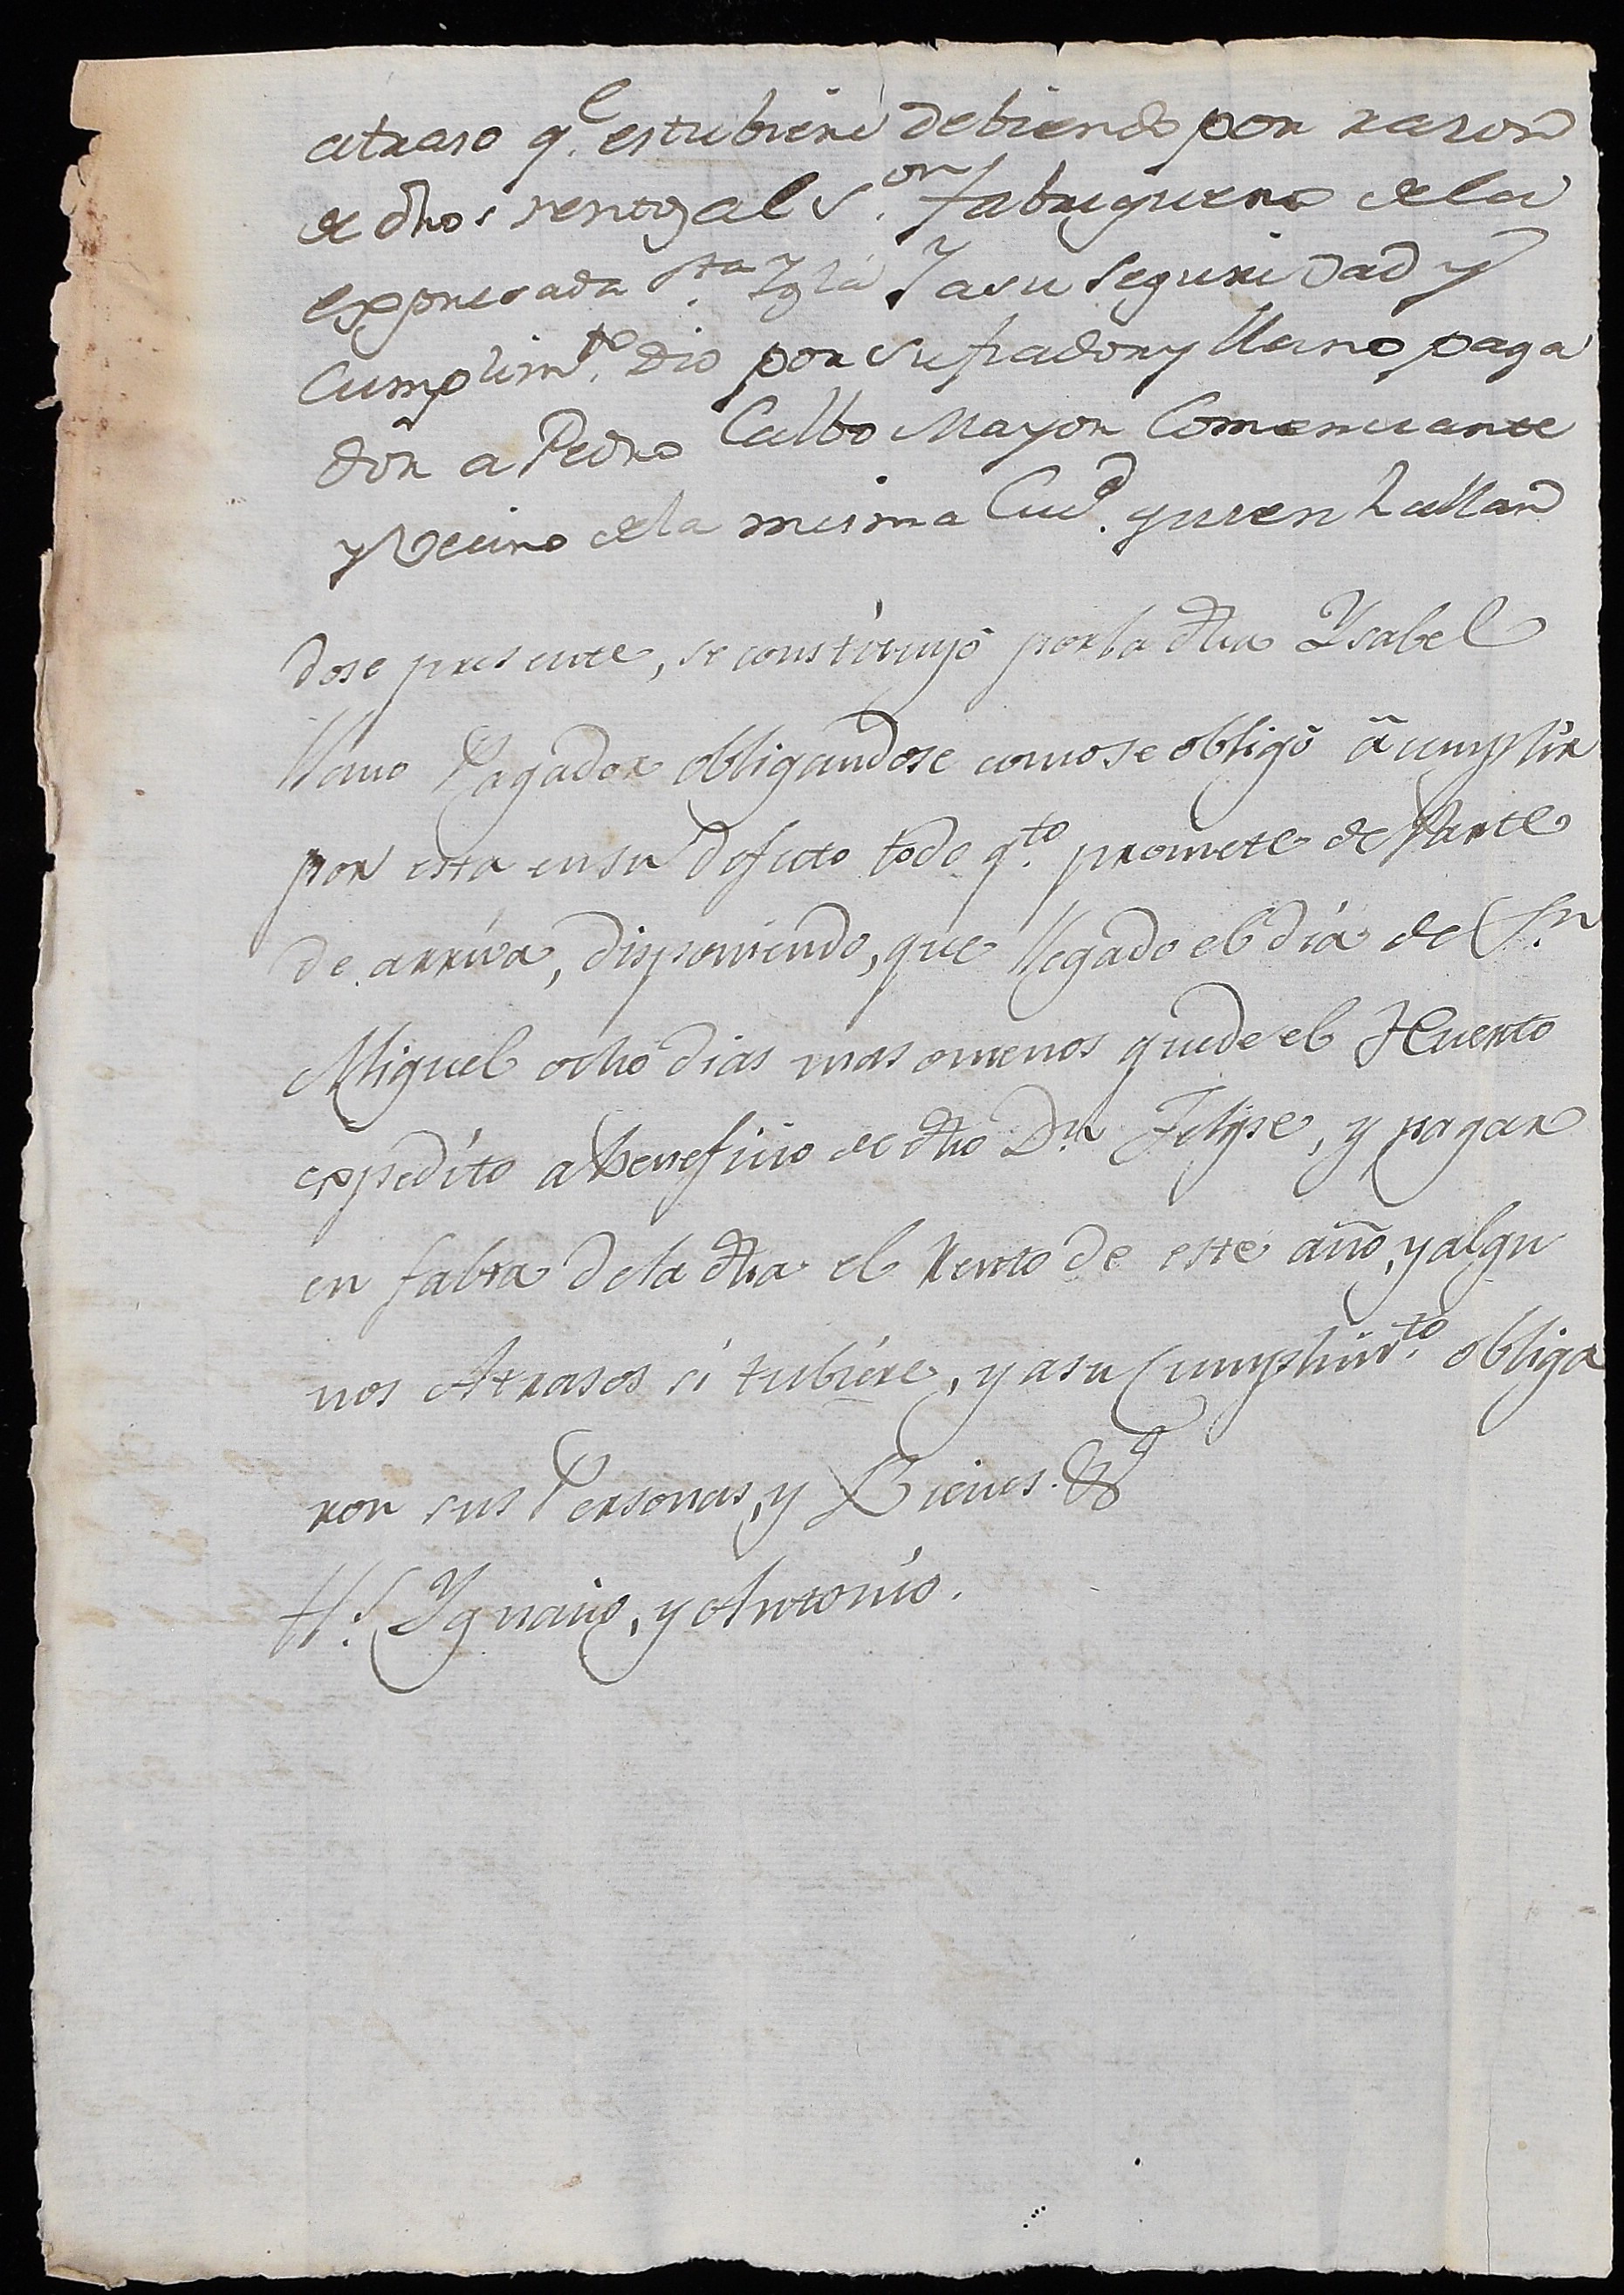 atraso q.e estubiere debiendo por razon
de dhos rentos al S.or Fabriquero de la
expresada S.ta Ygla Y a su seguridad y
Cumplim.to Dio por su fiador y llano paga
dor a Pedro Calbo Mayor Comerciante
y Vecino de la misma Ciud.d quien hallan
dose presente, se constituyó por la dha Ysabel
llano Pagador obligandose como se obligó á cumplir
por esta en su defecto todo q.to promete de parte
de arriva, disponiendo, que llegado el día de S.n
Miguel ocho dias mas o menos quede el Huerto
expedíto a beneficio de dho D.n Felipe, y pagar
en falta de la dha el Rento de este año, y algu
nos Atrasos si tubiére, y a su Cumplim.to obliga
ron sus Personas, y Bienes. &
tt.s Ygnacio, y Antonio.